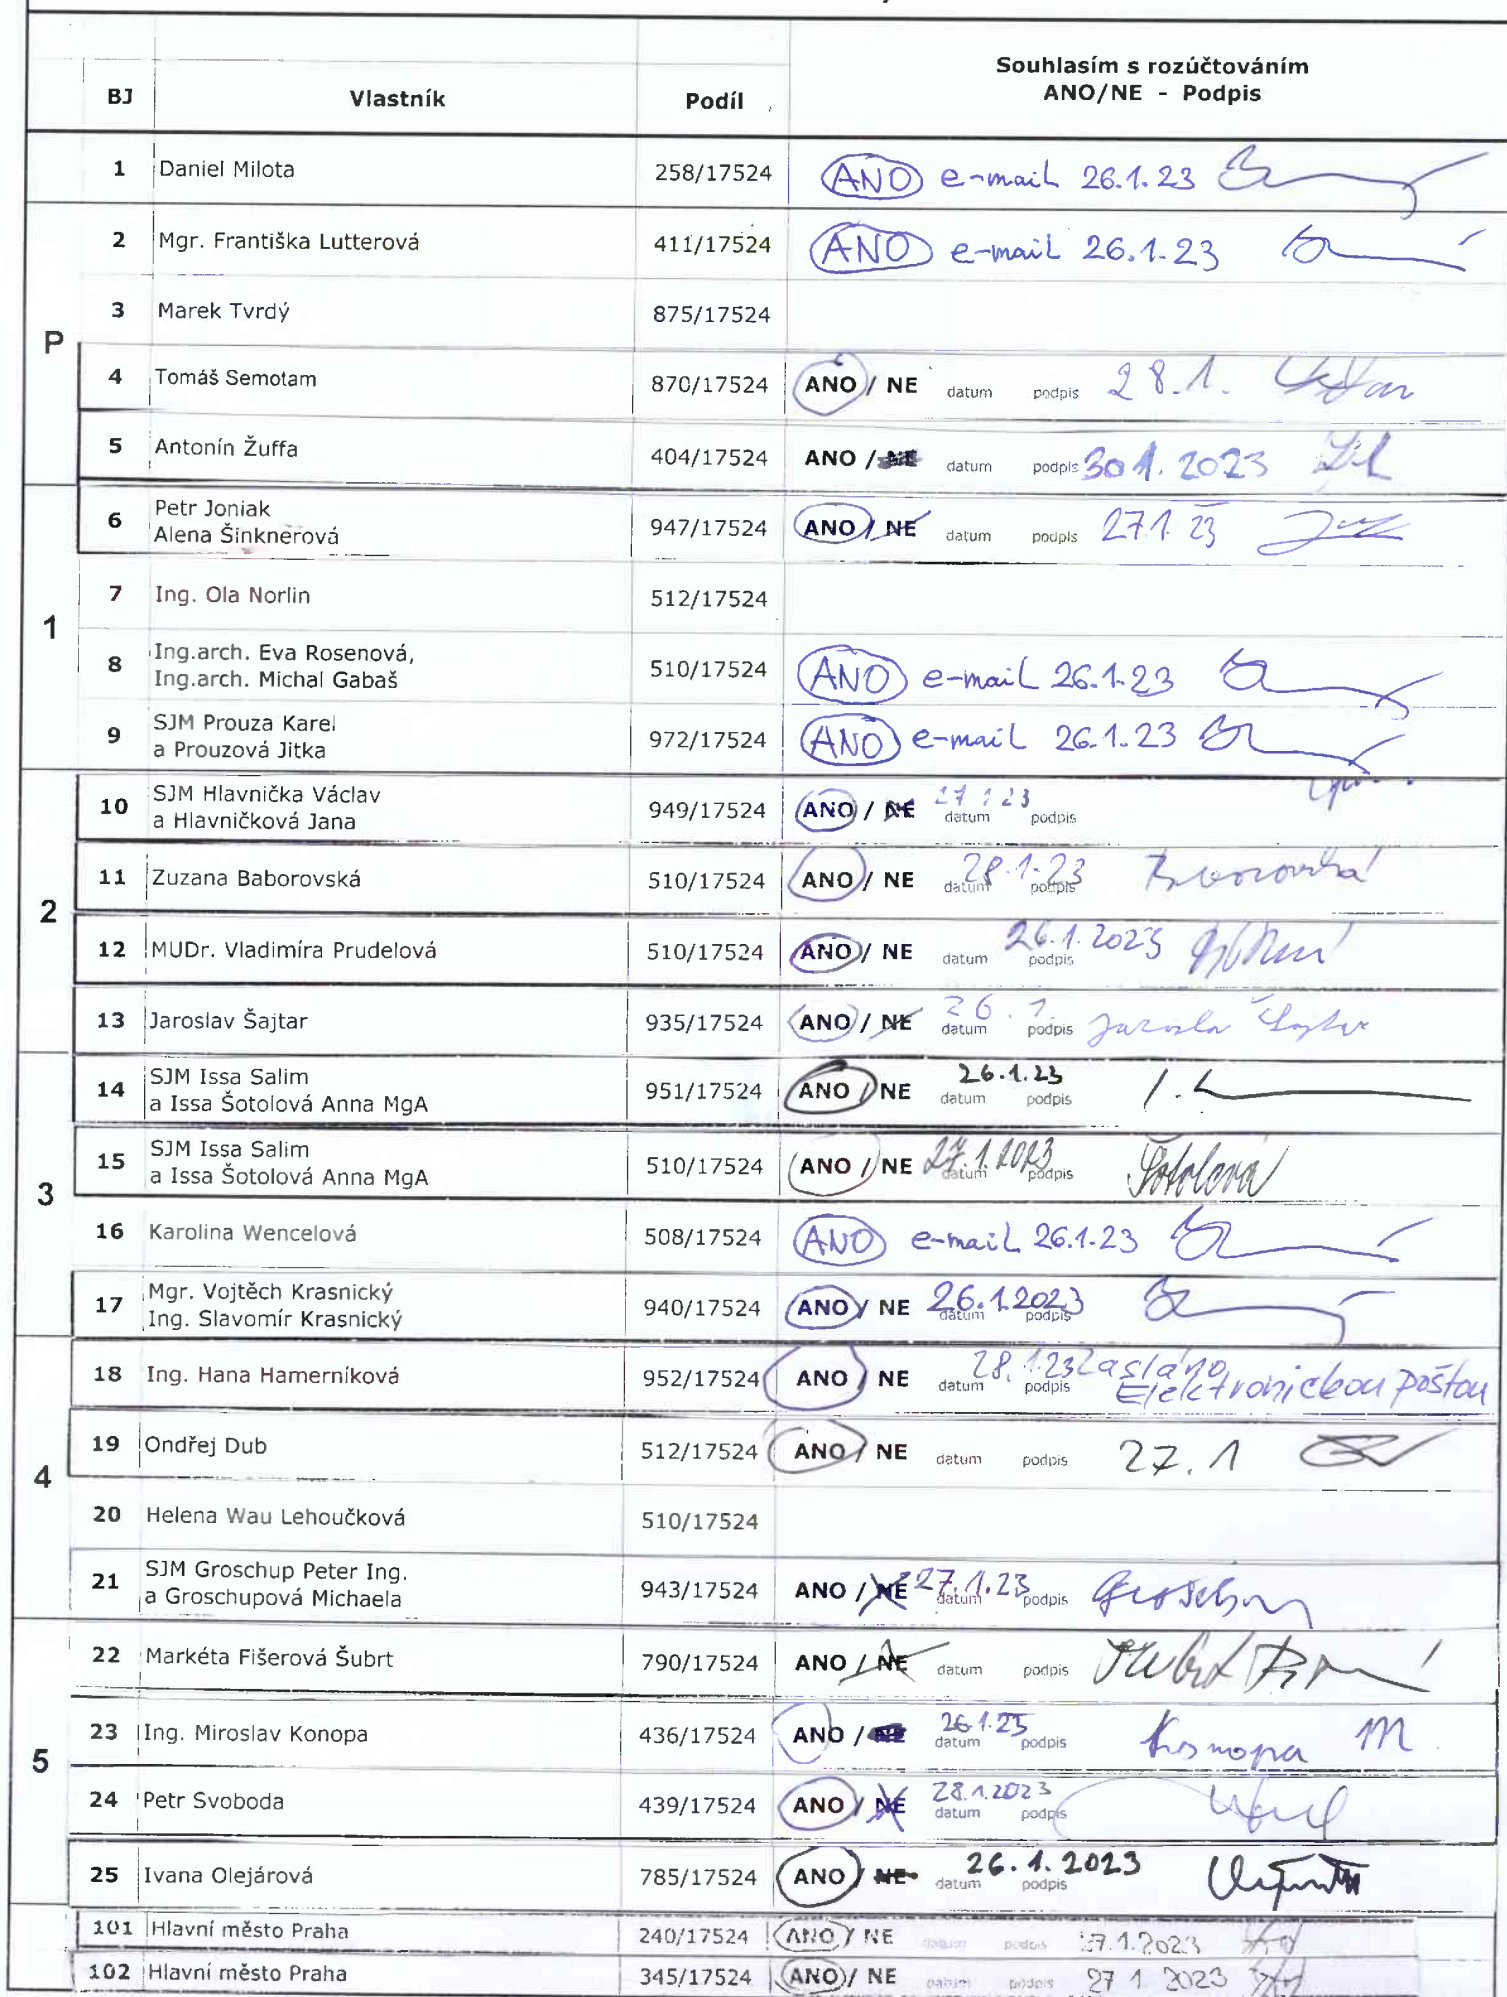 Souhlasím s rozúčtováním
BJ Vlastník Podíl ANO/NE - Podpis
1 Daniel Milota 258/17524 ANO e-mail 26.1.23
2 Mgr. Františka Lutterová 411/17524 ANO e-mail 26.1.23
3 Marek Tvrdý 875/17524
P
4 Tomáš Semotam 870/17524 ANO / NE datum podpis 28.1.
5 Antonín Žuffa 404/17524 ANO / NE datum podpis 30 1. 2023
6 Petr Joniak
Alena Šinknerová 947/17524 ANO / NE datum podpis 27.1. 23
7 Ing. Ola Norlin 512/17524
1
8 Ing.arch. Eva Rosenová,
Ing.arch. Michal Gabaš 510/17524 ANO e-mail 26.1.23
9 SJM Prouza Karel
a Prouzová Jitka 972/17524 ANO e-mail 26.1.23
10 SJM Hlavnička Václav
a Hlavničková Jana 949/17524 ANO / NE 27 1 23 datum podpis
11 Zuzana Baborovská 510/17524 ANO / NE 28.1.23 datum podpis
2
12 MUDr. Vladimíra Prudelová 510/17524 ANO / NE 26.1.2023 datum podpis
13 Jaroslav Šajtar 935/17524 ANO / NE 26.1. datum podpis
14 SJM Issa Salim
a Issa Šotolová Anna MgA 951/17524 ANO / NE 26.1.23 datum podpis
15 SJM Issa Salim
a Issa Šotolová Anna MgA 510/17524 ANO / NE 27.1.2023 datum podpis Šotolová
3
16 Karolina Wencelová 508/17524 ANO e-mail 26.1.23
17 Mgr. Vojtěch Krasnický
Ing. Slavomír Krasnický 940/17524 ANO / NE 26.1.2023 datum podpis
18 Ing. Hana Hamerníková 952/17524 ANO / NE 28.1.23 datum podpis Zasláno
Elektronickou poštou
19 Ondřej Dub 512/17524 ANO / NE datum podpis 27.1
4
20 Helena Wau Lehoučková 510/17524
21 SJM Groschup Peter Ing.
a Groschupová Michaela 943/17524 ANO / NE 27.1.23 datum podpis
22 Markéta Fišerová Šubrt 790/17524 ANO / NE datum podpis
23 Ing. Miroslav Konopa 436/17524 ANO / NE 26.1.23 datum podpis Konopa M
5
24 Petr Svoboda 439/17524 ANO / NE 28.1.2023 datum podpis
25 Ivana Olejárová 785/17524 ANO / NE 26.1.2023 datum podpis
101 Hlavní město Praha 240/17524 ANO / NE datum podpis 27.1.2023
102 Hlavní město Praha 345/17524 ANO / NE datum podpis 27 1 2023